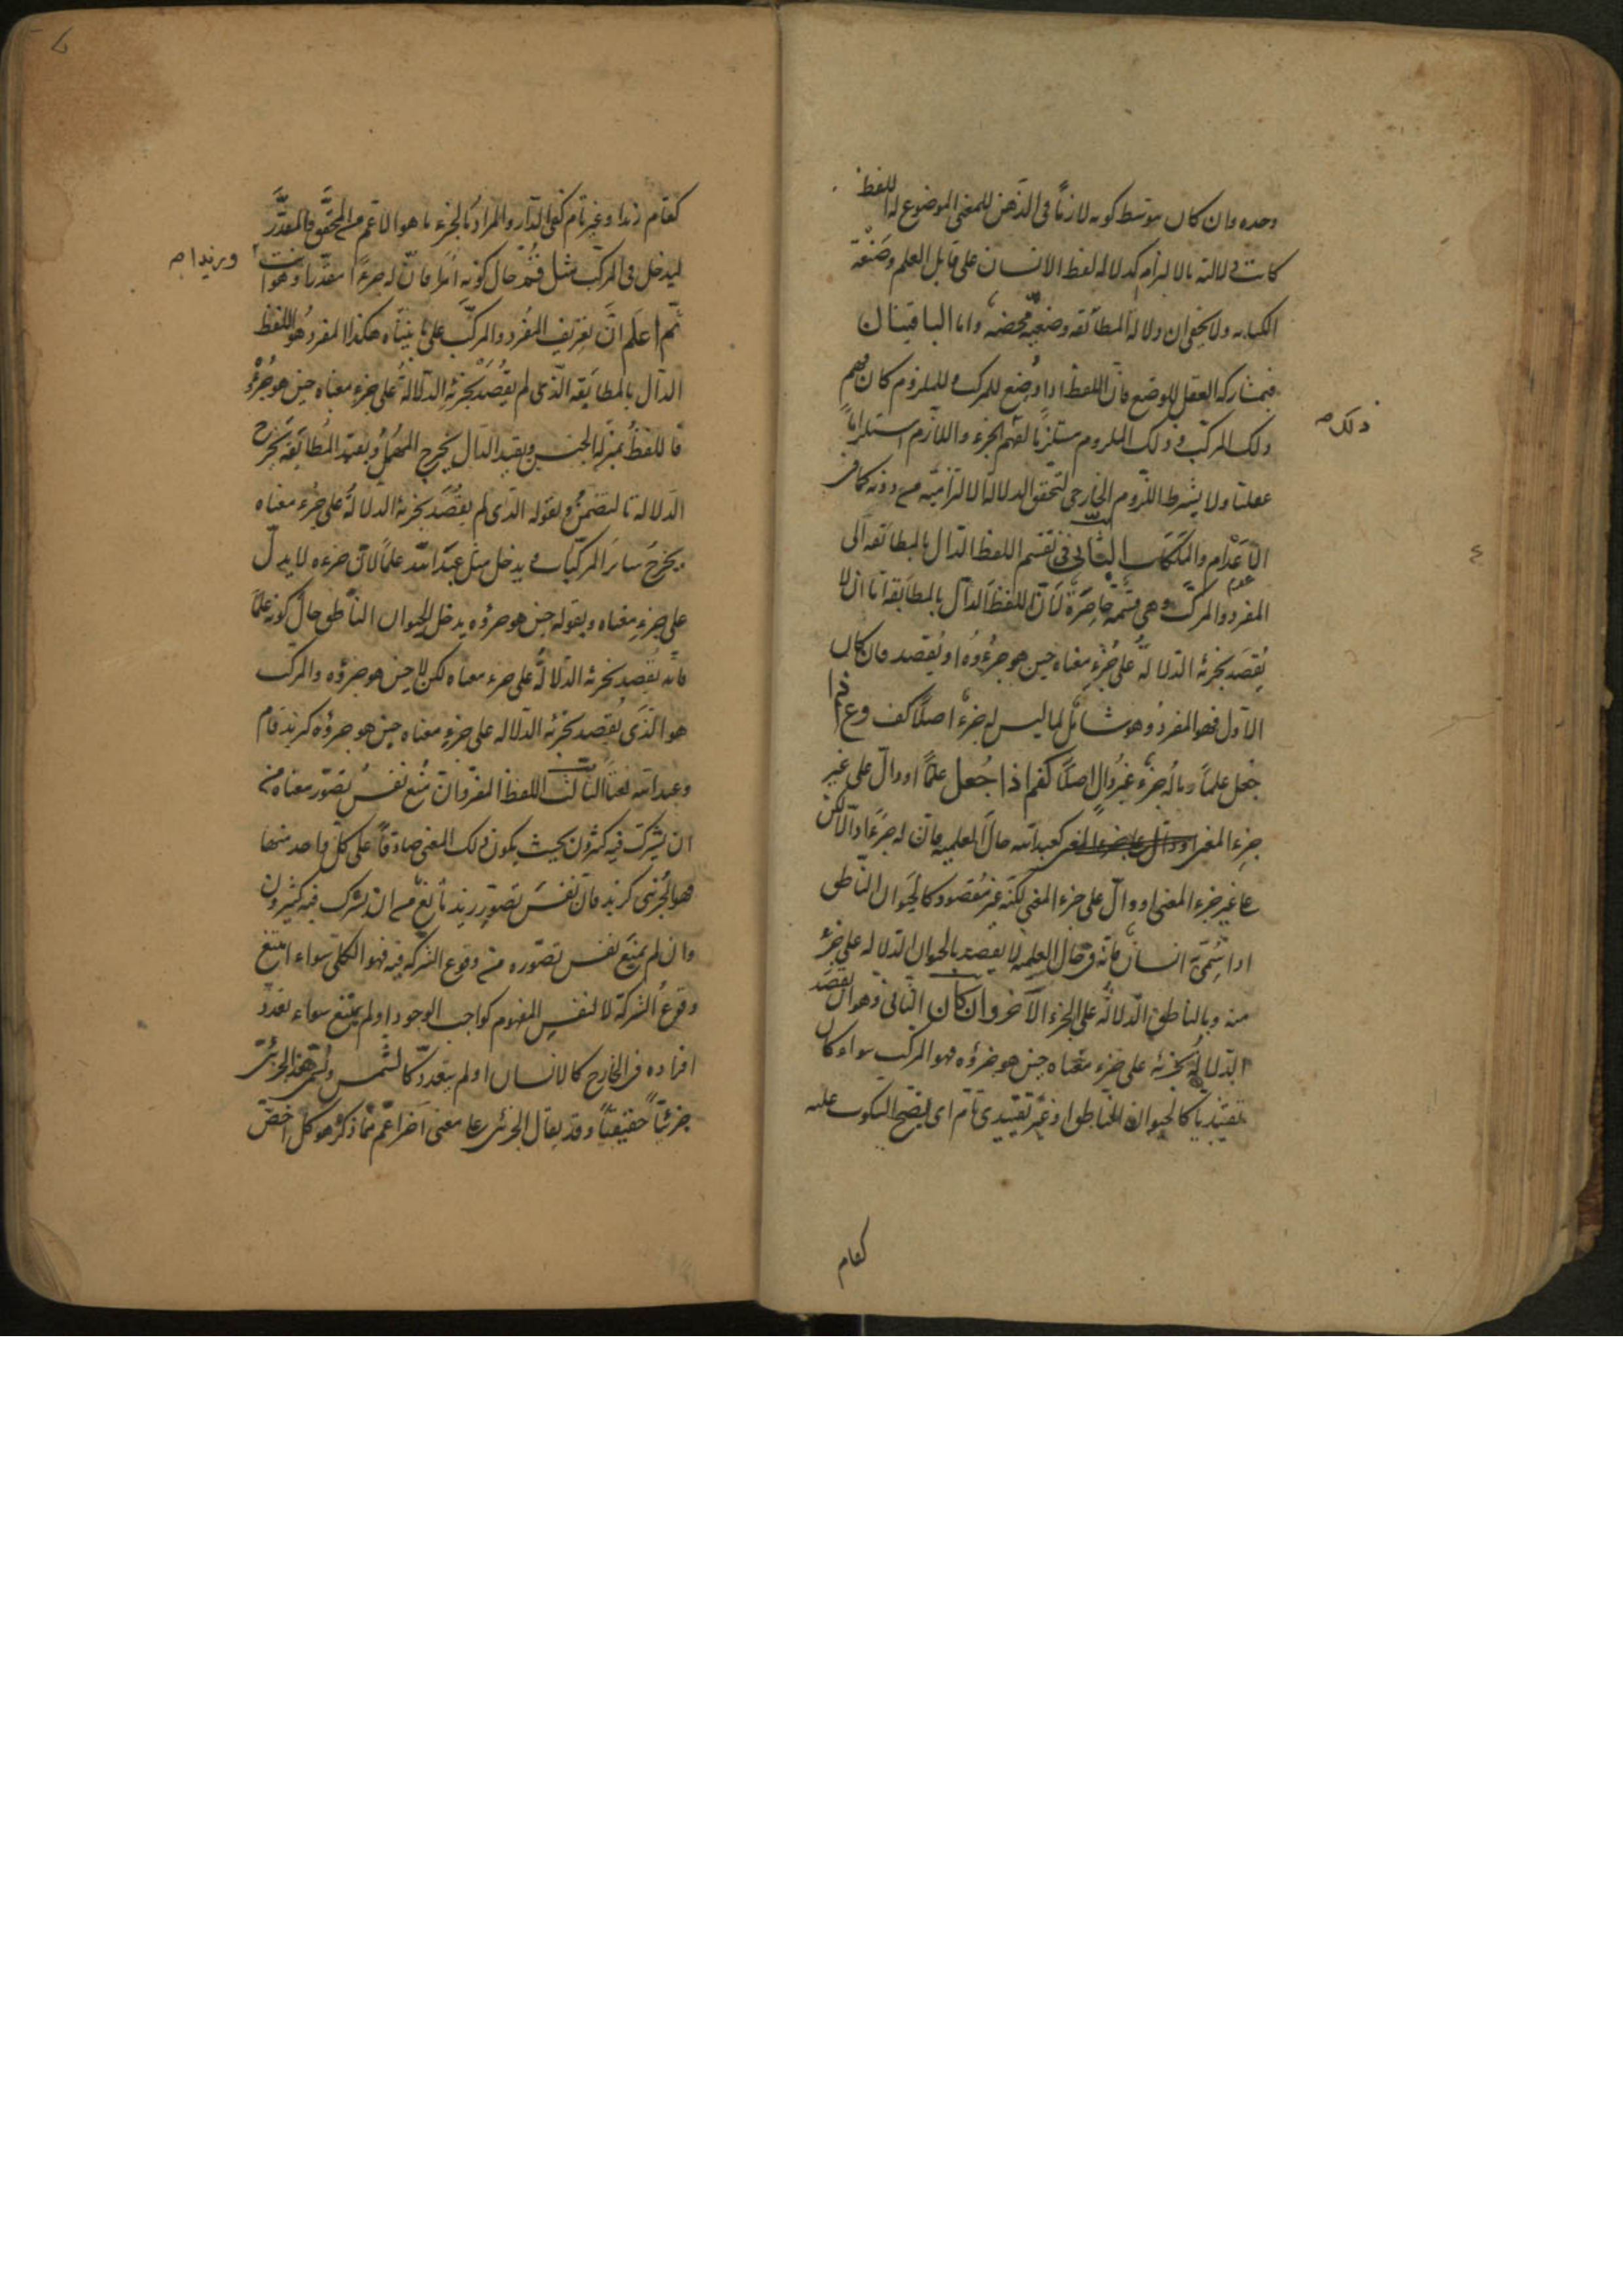 وحده وان كان بتوسط كونه لازمًا فى الذهن للمعنى الموضوع له اللفظ
كانت دلالته بالالتزام كدلالة لفظ الانسان على قابل العلم وصَنْعَة
الكتابه ولا يخفى ان دلالة المطابقه وضعيّة محضه واما الباقيتان
فبمشاركة العقل للوضع فانّ اللفظ اذا وُضع للمركب وللملزوم كان فهم
ذلك المركب وذلك الملزوم مستلزمًا لفهم الجزء واللازم استلزامًا
ذلك صح
عقليًّا ولا يشترط اللزوم الخارجى لتحقق الدلالة الالتزاميّة من دونه كما فى
الاَعْدام والمَلَكات البحث الثانى فى تقسيم اللفظ الدال بالمطابقه الى
المفرد والمركب وهى قسمة حاصرة لانّ اللفظ الدالّ بالمطابقة اما ان لا
يُقصَد بجزئه الدلالة على جُزءِ معناه حين هو جزءُوه او يُقصد فان كان
الاول فهو المفرد وهو شامل لما ليس له جزء اصلًا كف وع اذا
جعل علمًا وما له جزء غير دالٍ اصلًا كقم اذا جُعل علمًا او دالّ على غير
جزءِ المعنى كعبد الله حال العلميه فانّ له جزءًا دالًّا لكن
على غير جزء المعنى او دالّ على جزء المعنى لكنّه غير مقصود كالحيوان الناطق
اذا سُمّى به انسانٌ فانّه فى حال العلميه لا يقصد بالحيوان الدلاله على جزءٍ
منه وبالناطق الدلالة على الجزء الآخر وان كان الثانى وهو ان يقصَد
الدلالة بجزئه على جزء معناه حين هو جزؤه فهو المركب سواء كان
تقييديًّا كالحيوان الناطق او غير تقييدى تام اى يصحّ السكوت عليه
كقام
كقام زيد او غير تام كفى الدّار والمراد بالجزء ما هو الاعم من المحقّق والمقدّر
ليدخل فى المركّب مثل قُمْ حال كونه امرًا فانّ له جزءًا مقدرًا وهو انت
ثمّ اعلم انّ تعريف المُفرد والمركّب على ما بيّنّاه هكذا المفردُ هو اللفظ
الدّال بالمطابقة الذى لم يُقصَدْ بجزئِهِ الدلالةُ على جزءِ معناه حين هو جُزْؤُه
فاللفظُ بمنزلة الجنس وبقيد الدال يخرج المهمل وبقيد المُطابقة يخرج
الدلالة بالتضمن وبقوله الذى لم يقصد بجزئه الدلالةُ على جزء معناه
يخرج سائر المركّبات ويدخل مثل عبد الله علمًا لانّ جزءه لا يدلّ
على جزءِ معناه وبقوله حين هو جزؤه يدخل الحيوان الناطق حال كونه علمًا
فانّه يُقصد بجزئه الدلالةُ على جزء معناه لكن لا حين هو جزؤه والمركب
هو الّذى يُقصد بجزئه الدلاله على جزءِ معناه حين هو جزؤه كزيد قام
وعبد الله نعتًا البحث الثالث اللفظ المفرد ان منع نفس تصوّر معناه من
ان يشترك فيه كثيرون بحيث يكون ذلك المعنى صادقًا على كلّ واحد منها
فهو الجُزئى كزيد فان نفسَ تصوّرِ زيد مانع من ان يشترك فيه كثيرون
وان لم يمنع نفس تصوّره من وقوع الشركة فيه فهو الكلّى سواء امتنع
وقوعُ الشركة لا لنفسِ المفهوم كواجب الوجود او لم يمتنع سواء تعدّد
افراده فى الخارج كالانسان او لم يتعدد كالشمس ويسمّى هذا الجزئىّ
جزئيًّا حقيقيًّا وقد يقال الجزئى على معنى آخر اعمّ ممّا ذكر وهو كل اخصّ